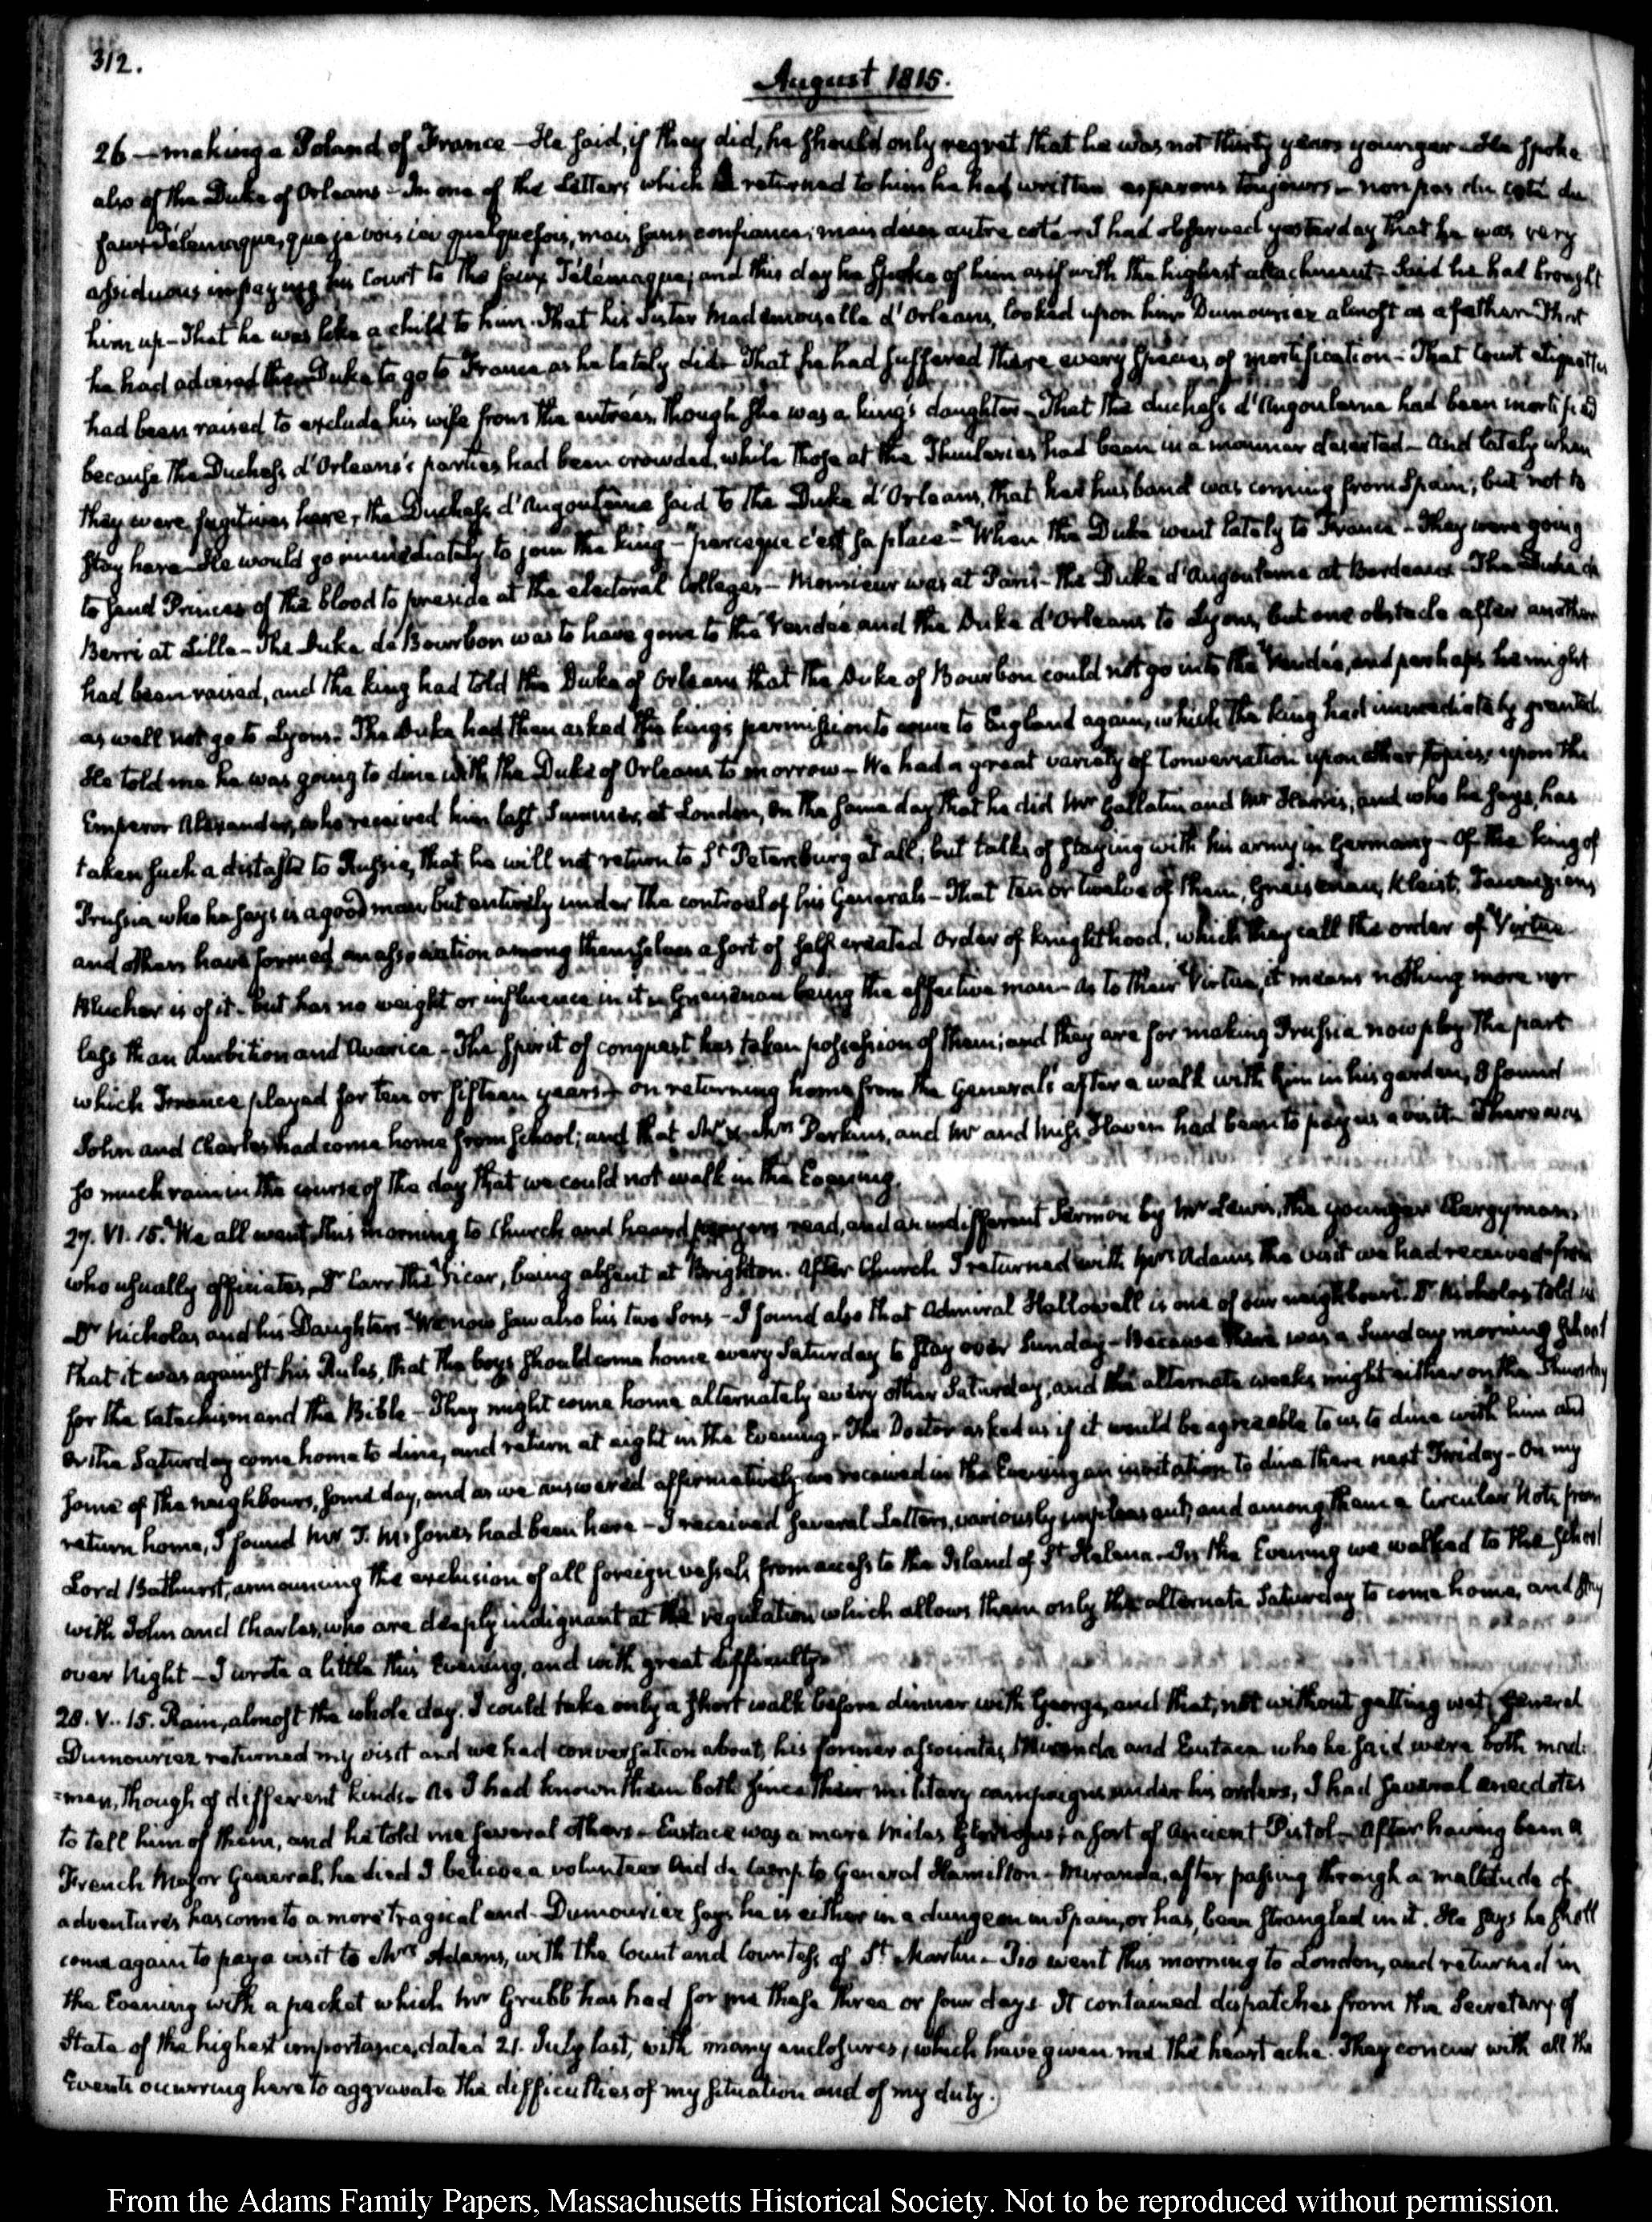 312.
August 1815.
26 — making a Poland of France — He said, if they did, he should only regret that he was not thirty years younger — He spoke
also of the Duke of Orleans — In one of the Letters which I returned to him he had written esperons toujours — non pas du coté du
faux Télemaque, que je vois ici quelquefois, mais sans confiance; mais d'un autre coté — I had observed yesterday that he was very
assiduous in paying his Court to the faux Télemaque; and this day he spoke of him as if with the highest attachment — Said he had brought
him up — That he was like a child to him. That his Sister Mademoiselle d'Orleans, looked upon him Dumouriez almost as a father — That
he had advised the Duke to go to France as he lately did — That he had suffered there every species of mortification — That Court etiquettes
had been raised to exclude his wife from the entrées, though she was a king's daughter — That the duchess d'Angouleme had been mortified
because the Duchess d'Orleans's parties had been crowded, while those at the Thuileries had been in a manner deserted — And lately when
they were fugitives here, the Duchess d'Angouleme said to the Duke d'Orleans, that her husband was coming from Spain; but not to
stay here — He would go immediately to join the king — "parceque c'est sa place" — When the Duke went lately to France — They were going
to send Princes of the blood to preside at the electoral Colleges — Monsieur was at Paris — The Duke d'Angouleme at Bordeaux — The Duke de
Berri at Lille — The Duke de Bourbon was to have gone to the Vendée and the Duke d'Orleans to Lyons, but one obstacle after another
had been raised, and the king had told the Duke of Orleans that the Duke of Bourbon could not go into the Vendée, and perhaps he might
as well not go to Lyons. The Duke had then asked the king's permission to come to England again, which the king had immediately granted.
He told me he was going to dine with the Duke of Orleans to morrow — We had a great variety of Conversation upon other topics, upon the
Emperor Alexander, who received him last Summer, at London, on the same day that he did Mr Gallatin and Mr Harris, and who he says, has
taken such a distaste to Russia, that he will not return to St Petersburg at all; but talks of staying with his army in Germany — Of the king of
Prussia who he says is a good man but entirely under the controul of his Generals — That ten or twelve of them, Gneisenau, Kleist, Tauenzien,
and others have formed an association among themselves a sort of self created order of knighthood, which they call the order of Virtue
Blucher is of it — but has no weight or influence in it — Gneisenau being the effective man — As to their Virtue, it means nothing more nor
less than Ambition and Avarice — The spirit of conquest has taken possession of them; and they are for making Prussia now play the part
which France played for ten or fifteen years — on returning home from the General's after a walk with him in his garden, I found
John and Charles had come home from School; and that Mr & Mrs Perkins, and Mr and Miss Haven had been to pay us a visit — There was
so much rain in the course of the day that we could not walk in the Evening.
27. VI. 15. We all went this morning to Church and heard prayers read, and an indifferent Sermon by Mr Lewis, the younger Clergyman,
who usually officiates, Dr Carr the Vicar, being absent at Brighton. After Church I returned with Mrs Adams the visit we had received from
Dr Nicholas and his Daughters — We now saw also his two Sons — I found also that Admiral Hallowell is one of our neighbours. Dr Nicholas told us
that it was against his Rules, that the boys should come home every Saturday to stay over Sunday — Because there was a Sunday morning school
for the Catechism and the Bible — They might come home alternately every other Saturday, and the alternate weeks might either on the Thursday
or the Saturday come home to dine, and return at eight in the Evening — The Doctor asked us if it would be agreeable to us to dine with him and
some of the neighbours, some day, and as we answered affirmatively we received in the Evening an invitation to dine there next Friday — On my
return home, I found Mr T. M. Jones had been here — I received several Letters, variously unpleasant; and among them a Circular Note from
Lord Bathurst, announcing the exclusion of all foreign vessels from access to the Island of St Helena — In the Evening we walked to the School
with John and Charles, who are deeply indignant at the regulation which allows them only the alternate Saturday to come home, and stay
over Night — I wrote a little this Evening, and with great difficulty.
28. V.. 15. Rain, almost the whole day. I could take only a short walk before dinner with George, and that, not without getting wet. General
Dumouriez returned my visit and we had conversation about, his former associates, Miranda and Eustace who he said were both mad:
=men, though of different kinds — As I had known them both since their military campaigns under his orders, I had several anecdotes
to tell him of them, and he told me several others — Eustace was a mere Miles Gloriosus; a sort of Ancient Pistol — After having been a
French Major General, he died I believe a volunteer Aid de Camp to General Hamilton — Miranda, after passing through a multitude of
adventures has come to a more tragical end — Dumouriez says he is either in a dungeon in Spain, or has, been strangled in it. He says he shall
come again to pay a visit to Mrs Adams, with the Count and Countess of St Martin — Tio went this morning to London, and returned in
the Evening with a packet which Mr Grubb has had for me these three or four days. It contained dispatches from the Secretary of
State of the highest importance, dated 21. July last, with many enclosures, which have given me the heart ache. They concur with all the
Events occurring here to aggravate the difficulties of my situation and of my duty.
From the Adams Family Papers, Massachusetts Historical Society. Not to be reproduced without permission.